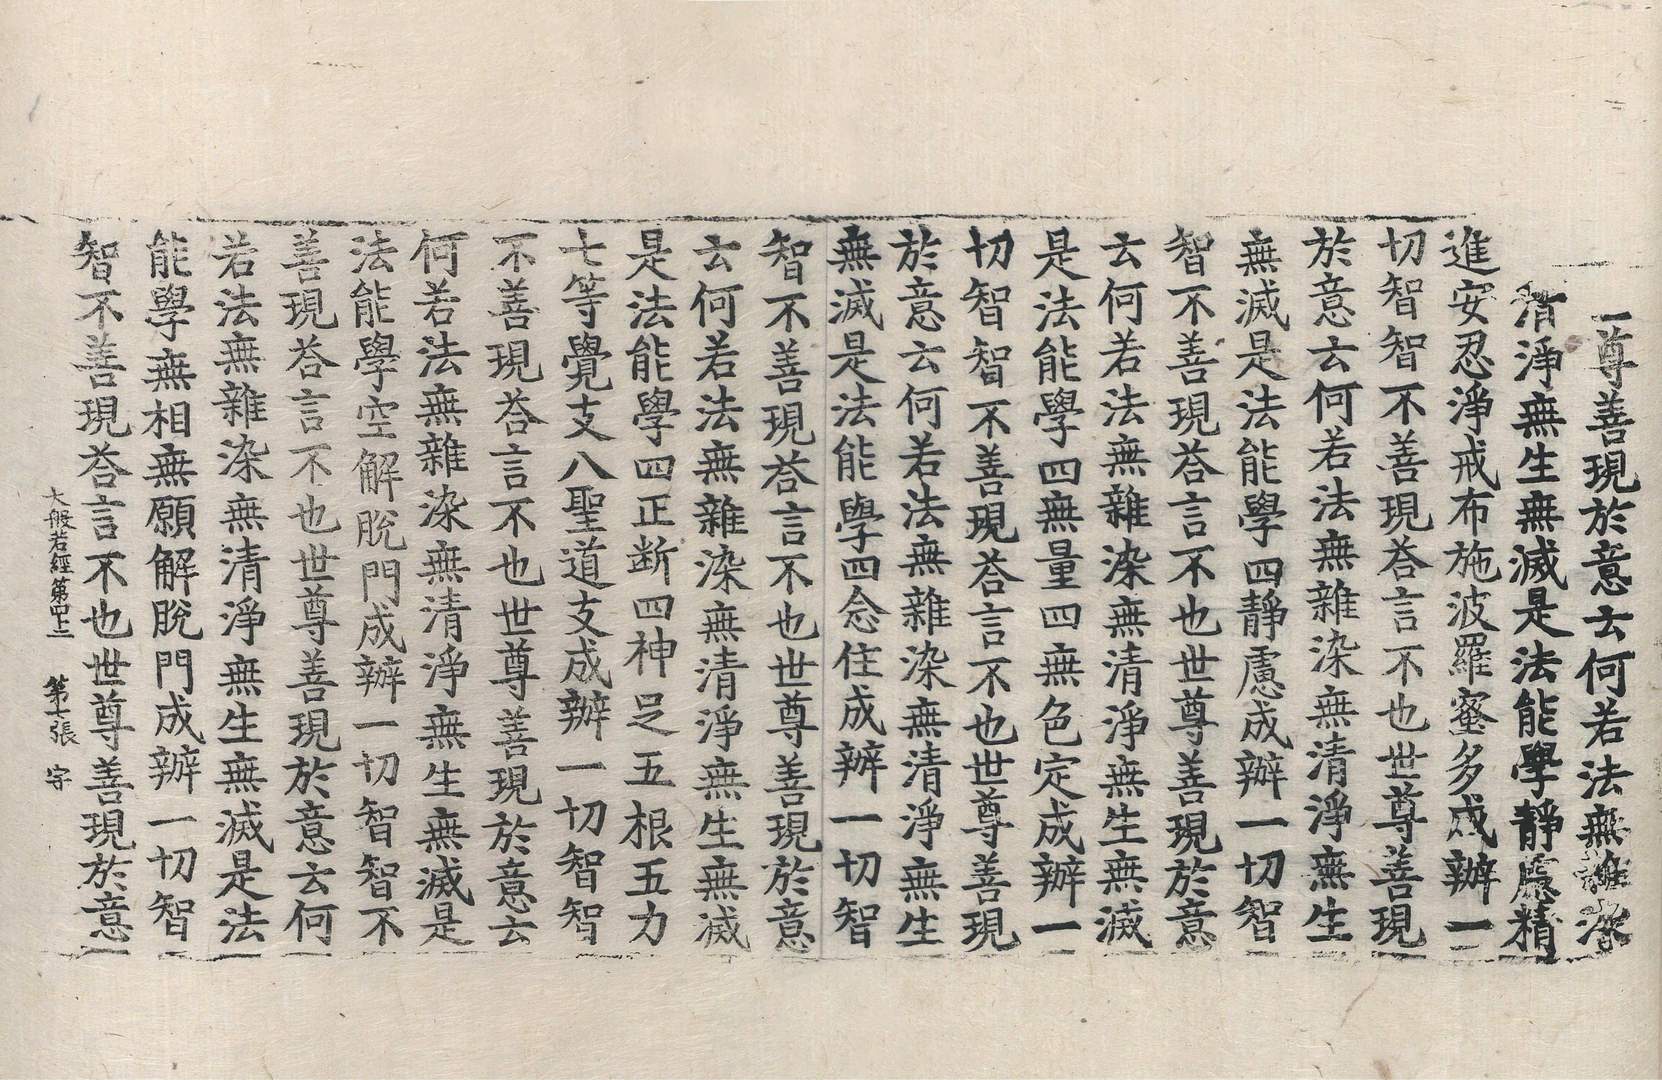 尊善現於意云何若法無雜染
清淨無生無滅是法能學靜慮精
進安忍淨戒布施波羅蜜多成辦一
切智智不善現荅言不也世尊善現
於意云何若法無雜染無清淨無生
無滅是法能學四靜慮成辦一切智
智不善現荅言不也世尊善現於意
云何若法無雜染無清淨無生無滅
是法能學四無量四無色定成辦一
切智智不善現荅言不也世尊善現
於意云何若法無雜染無清淨無生
無滅是法能學四念住成辦一切智
智不善現荅言不也世尊善現於意
云何若法無雜染無清淨無生無滅
是法能學四正断四神足五根五力
七等覺支八聖道支成辦一切智智
不善現荅言不也世尊善現於意云
何若法無雜染無清淨無生無滅是
法能學空解脫門成辦一切智智不
善現荅言不也世尊善現於意云何
若法無雜染無清淨無生無滅是法
能學無相無願解脫門成辦一切智
智不善現荅言不也世尊善現於意
大般若經第四十二 第七張 宇